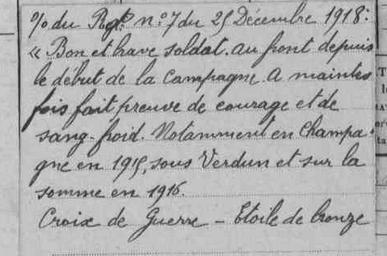 % du Rgt. n° 7 du 25 Décembre 1918:
« Bon et brave soldat, au front depuis
le début de la campagne. A maintes
fois fait preuve de courage et de
sang-froid. Notamment en Champa-
gne en 1915, sous Verdun et sur la
somme en 1916.
Croix de Guerre - Etoile de bronze